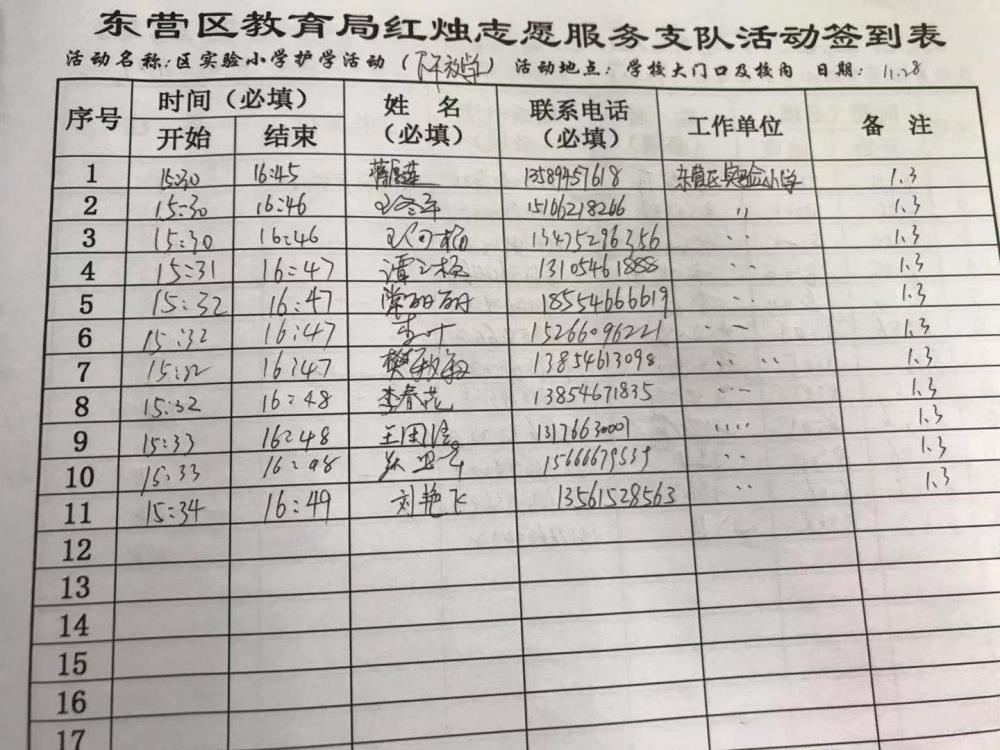 东营区教育局红烛志愿服务支队活动签到表
活动名称:区实验小学护学活动(下午放学) 活动地点:学校大门口及校内 日期: 11.28
序号 时间(必填) 姓名(必填) 联系电话(必填) 工作单位 备注
开始 结束
1 15:30 16:45 13589457618 东营区实验小学 1.3
2 15:30 16:46 15106218266 〃 1.3
3 15:30 16:46 13475296356 〃 1.3
4 15:31 16:47 13105461888 〃 1.3
5 15:32 16:47 常丽丽 18554666619 〃 1.3
6 15:32 16:47 15266096221 〃 1.3
7 15:32 16:47 樊秋梅 13854613098 〃 1.3
8 15:32 16:48 李春花 13854671835 〃 1.3
9 15:33 16:48 13176630007 〃 1.3
10 15:33 16:48 15666679539 〃 1.3
11 15:34 16:49 刘艳飞 13561528563 〃 1.3
12
13
14
15
16
17